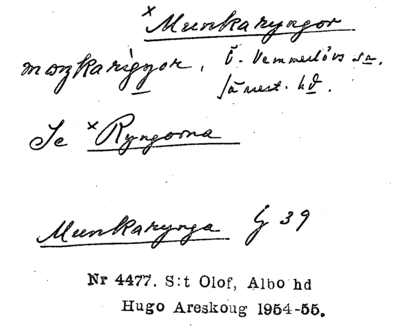 × Munkaryngor
Ö. Vemmerlövs sn.
Järrest. hd.
Se × Ryngorna
Munkarynga G 39
Nr 4477. S:t Olof, Albo hd
Hugo Areskoug 1954-55.